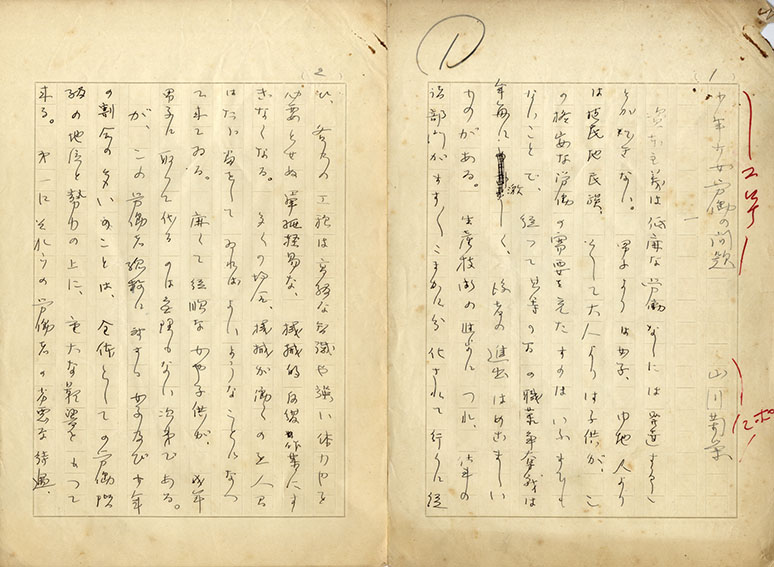 1
(1)
2号
少年少女労働の問題
山川菊栄
12ポ
一
資本主義は低廉な労働なしには発達するこ
とができない。男子よりは女子、内地人より
は植民地民族、そして大人よりは子供が、こ
の格安な労働の需要を充たすものはいふまでも
ないことで、従つて の方の職業争奪戦は
年毎に激しく、後者の進出はめざましい
ものがある。生産技術の進歩につれ、仕事の
諸部門がます〱こまかに分化されて行くに従
(2)
ひ、各々の工程は高級な知識や強い体力を
必要とせぬ単純軽易な、機械的反復作業にす
ぎなくなる。多くの場合、機械が働くのを人は
はたに番をしてゐればよいようなことになつ
て来てゐる。廉くて従順な女や子供が、成年
男子に取つて代るのは無理もない次第である。
が、この労働者総数に対する女子及び少年
の割合の多い ことは、全体としての労働階
級の地位と勢力の上に、重大な影響をもつて
来る。第一に之れらの労働者の劣悪な待遇、